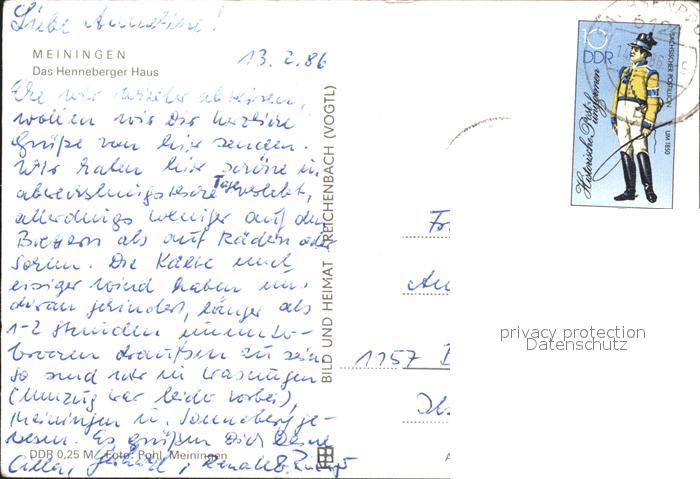 Liebe Anneliese!
MEININGEN
13.2.86
Das Henneberger Haus
Ehe wir wieder abreisen,
wollen wir Dir herzliche
Grüße von hier senden.
Wir haben hier schöne
Tage verlebt,
allerdings weniger auf den
Brettern als auf Rädern oder
Sohlen. Die Kälte und
eisiger Wind haben uns
daran gehindert, länger als
1-2 Stunden ununter-
brochen draußen zu sein
so sind wir in Wasungen
(Umzug war leider vorbei),
Meiningen u. Sonneberg ge-
wesen. Es grüßen Dich Deine
DDR 0,25 M Foto: Pohl, Meiningen
BILD UND HEIMAT REICHENBACH (VOGTL)
10
DDR
Historische Postuniformen
SÄCHSISCHER POSTILLION UM 1850
1157
privacy protection
Datenschutz